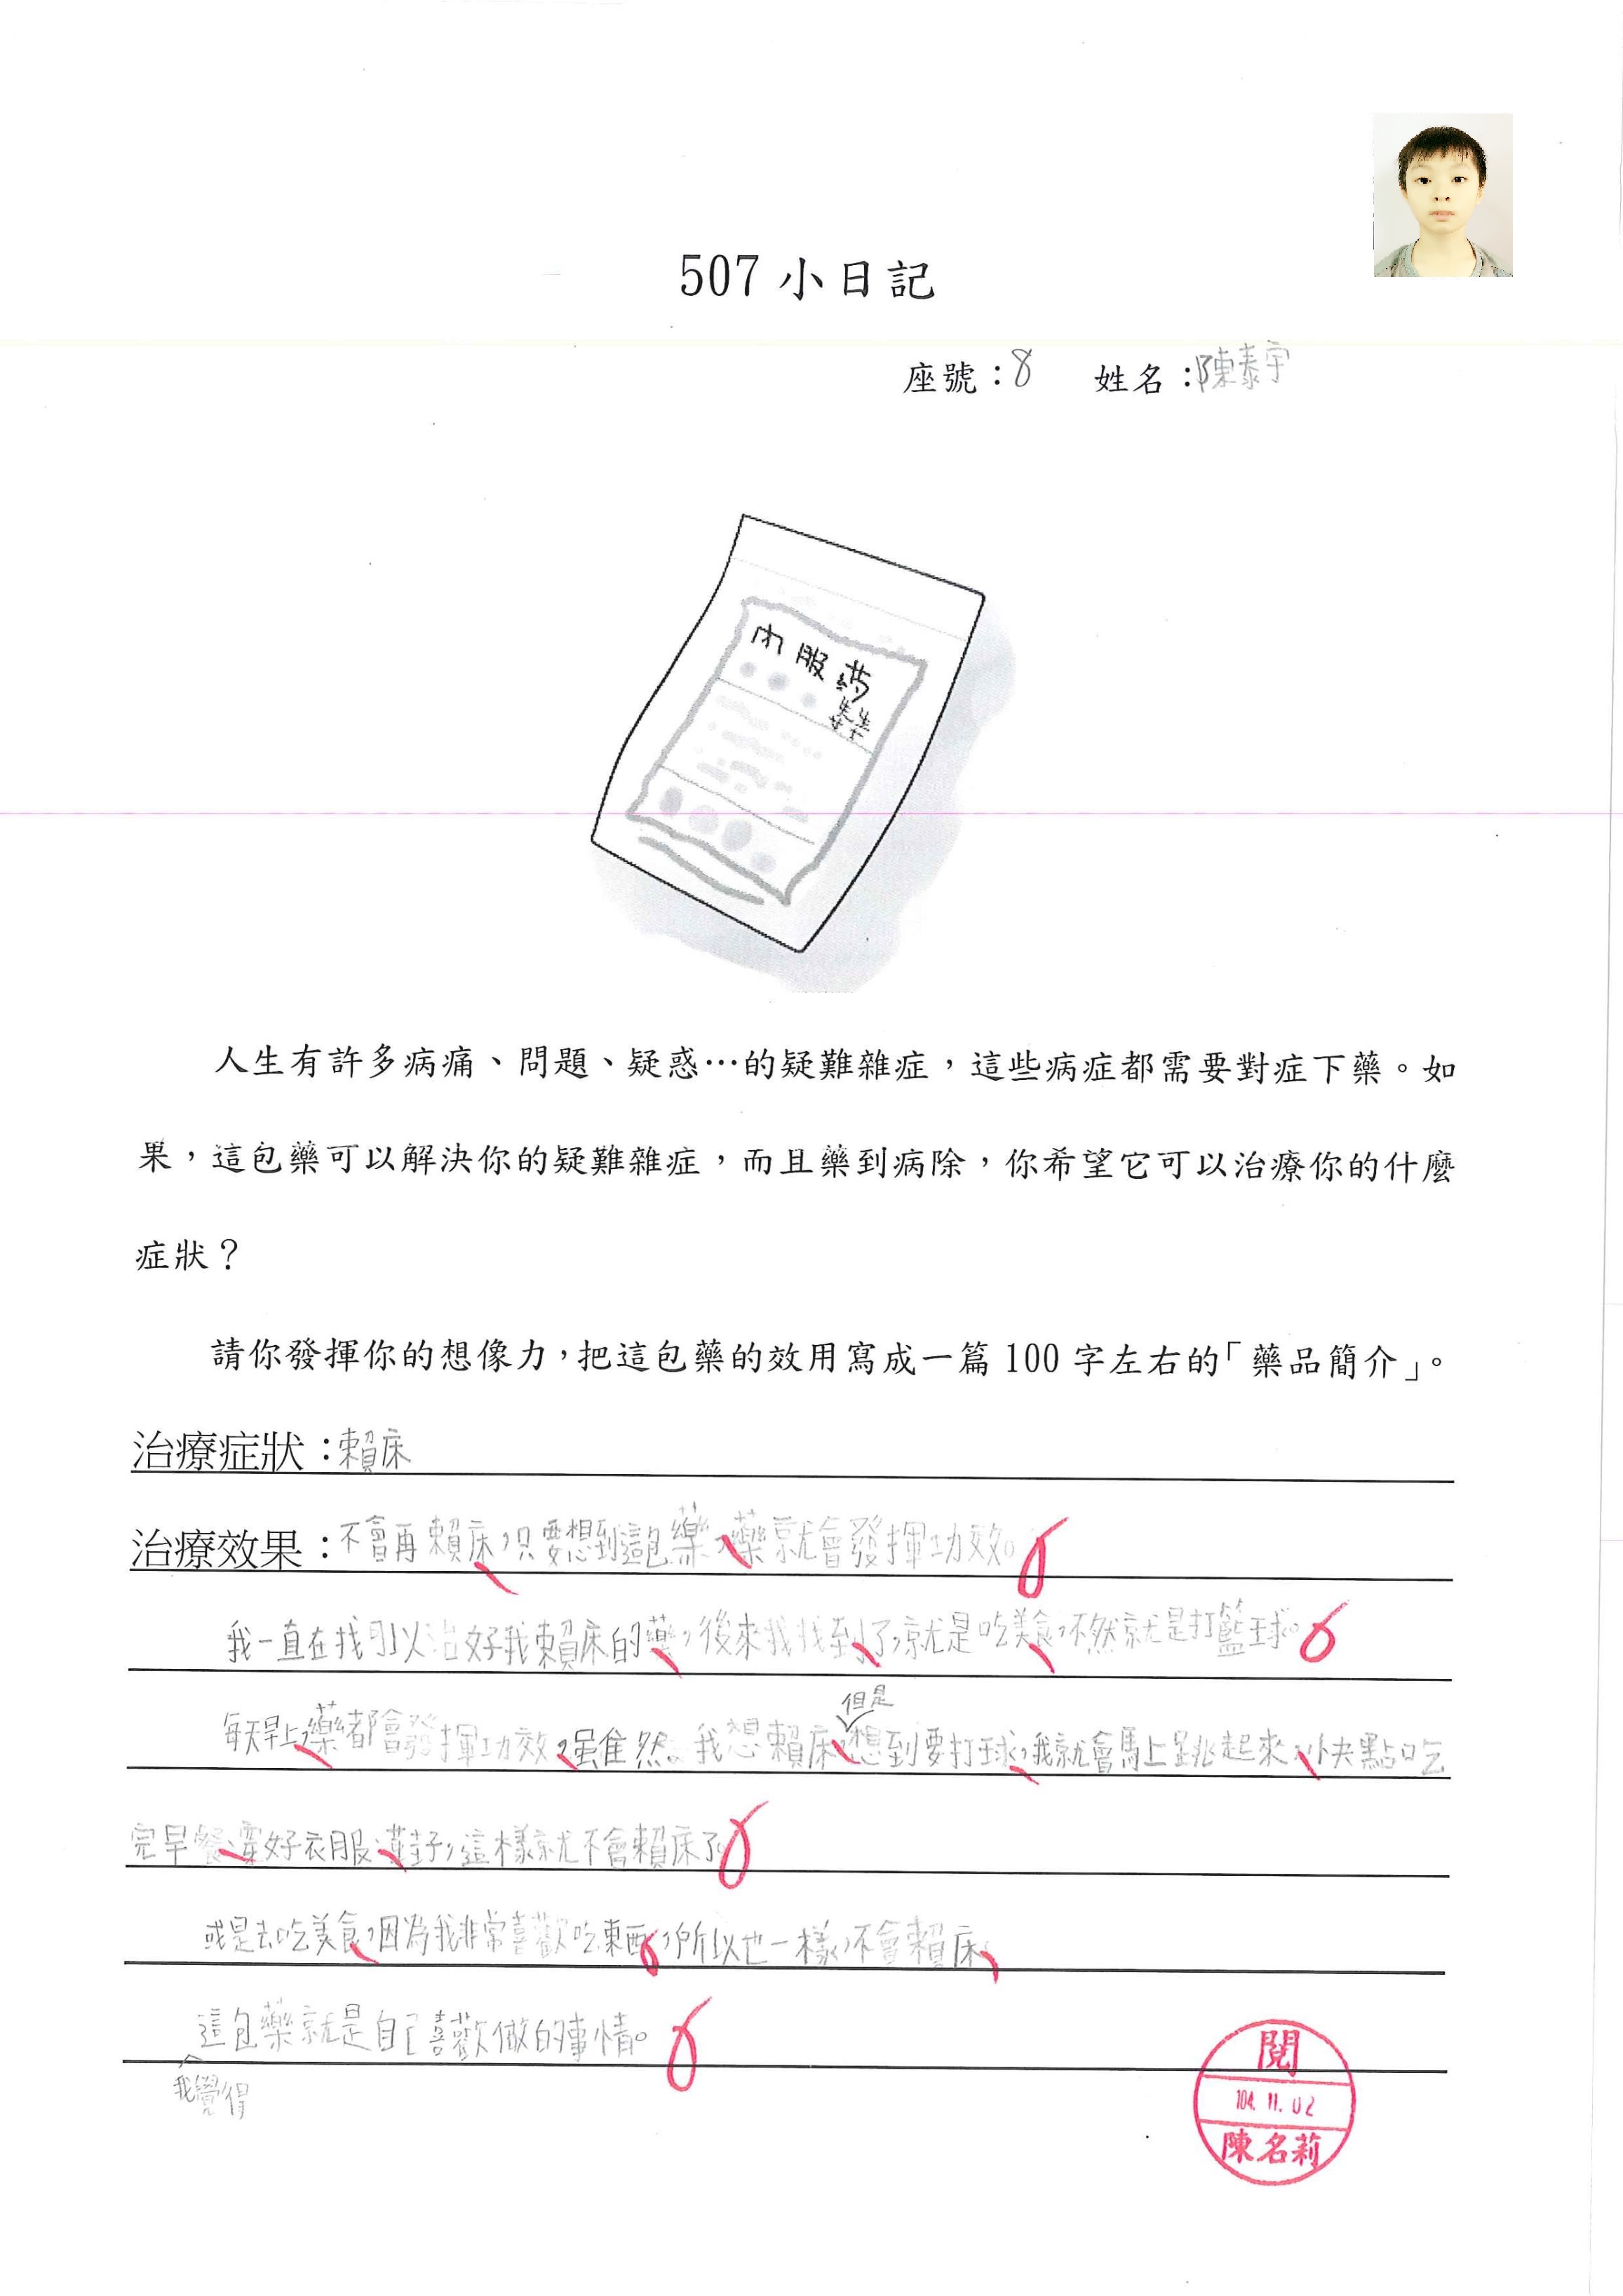 507 小日記
座號：8 姓名：陳泰宇
內服藥
人生有許多病痛、問題、疑惑…的疑難雜症，這些病症都需要對症下藥。如
果，這包藥可以解決你的疑難雜症，而且藥到病除，你希望它可以治療你的什麼
症狀？
請你發揮你的想像力，把這包藥的效用寫成一篇 100 字左右的「藥品簡介」。
治療症狀：賴床
治療效果：不會再賴床，只要想到這包藥，藥就會發揮功效。
我一直在找可以治好我賴床的藥，後來我找到了，就是吃美食，不然就是打籃球。
但是
每天早上，藥都會發揮功效，雖然我想賴床，想到要打球，我就會馬上跳起來，快點吃
完早餐、穿好衣服、鞋子，這樣就不會賴床了。
或是去吃美食，因為我非常喜歡吃東西，所以也一樣，不會賴床，
這包藥就是自己喜歡做的事情。
我覺得
閱
104. 11. 02
陳名莉